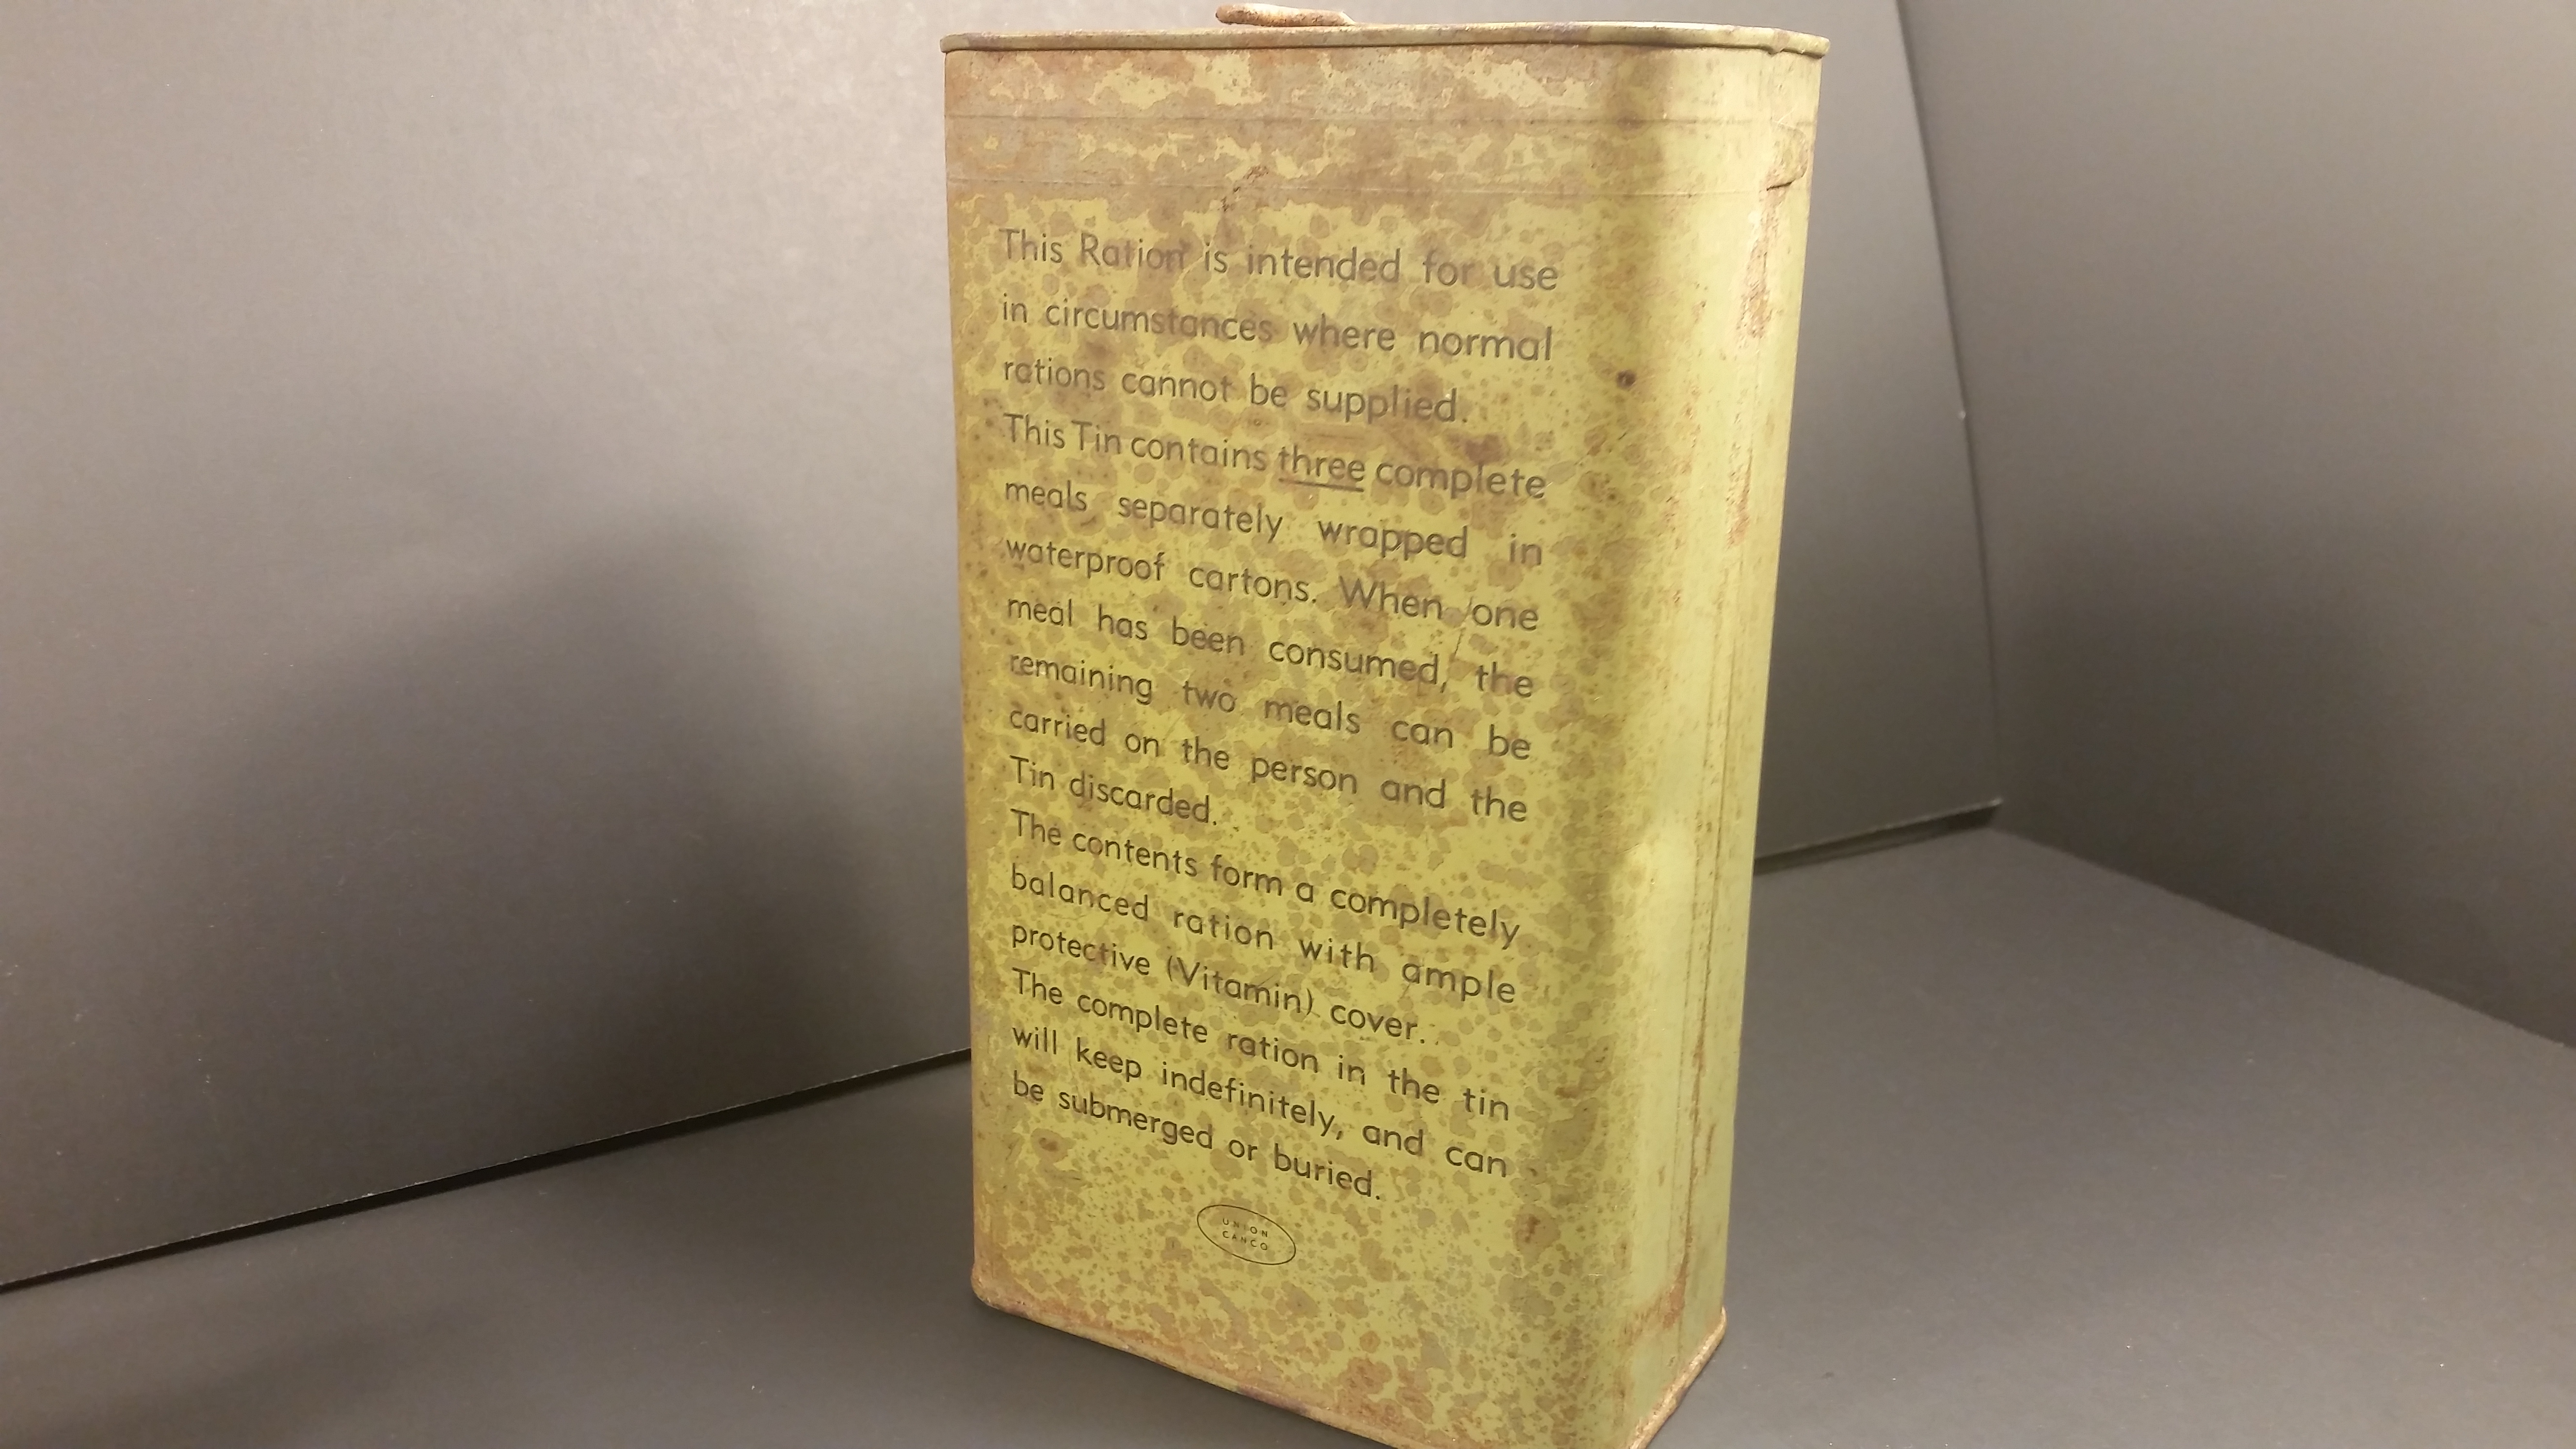 This Ration is intended for use
in circumstances where normal
rations cannot be supplied.
This Tin contains three complete
meals separately wrapped in
waterproof cartons. When one
meal has been consumed, the
remaining two meals can be
carried on the person and the
Tin discarded.
The contents form a completely
balanced ration with ample
protective (Vitamin) cover.
The complete ration in the tin
will keep indefinitely, and can
be submerged or buried.
UNION
CANCO